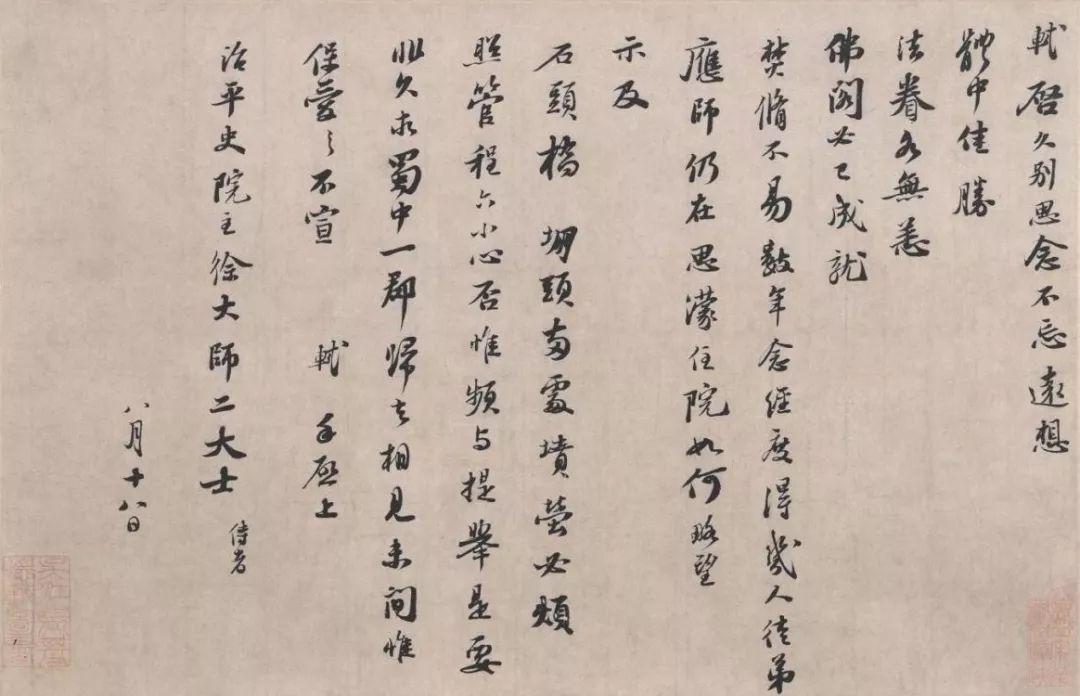 軾啓久別思念不忘遠想
體中佳勝
法眷各無恙
佛閣必已成就
焚脩不易數年念經度得幾人徒弟
應師仍在思濛住院如何略望
示及
石頭橋 堋頭兩處墳塋必煩
照管程六小心否惟頻与提舉是要
非久求蜀中一郡歸去相見未間惟
保愛之不宣 軾 手啓上
治平史院主徐大師二大士 侍者
八月十八日